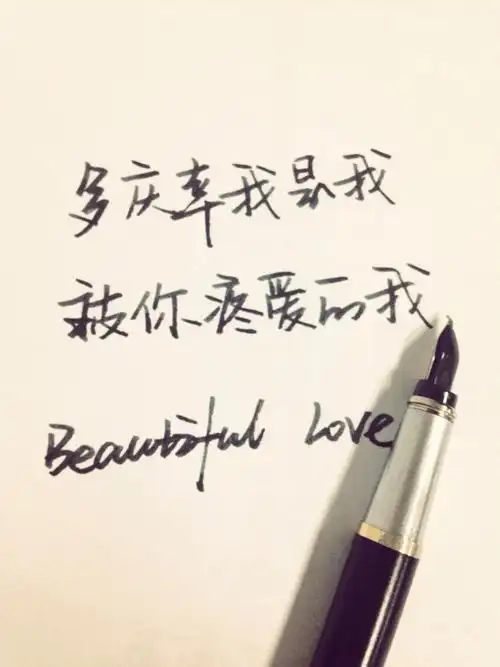 多庆幸我是我
被你疼爱的我
Beautiful Love